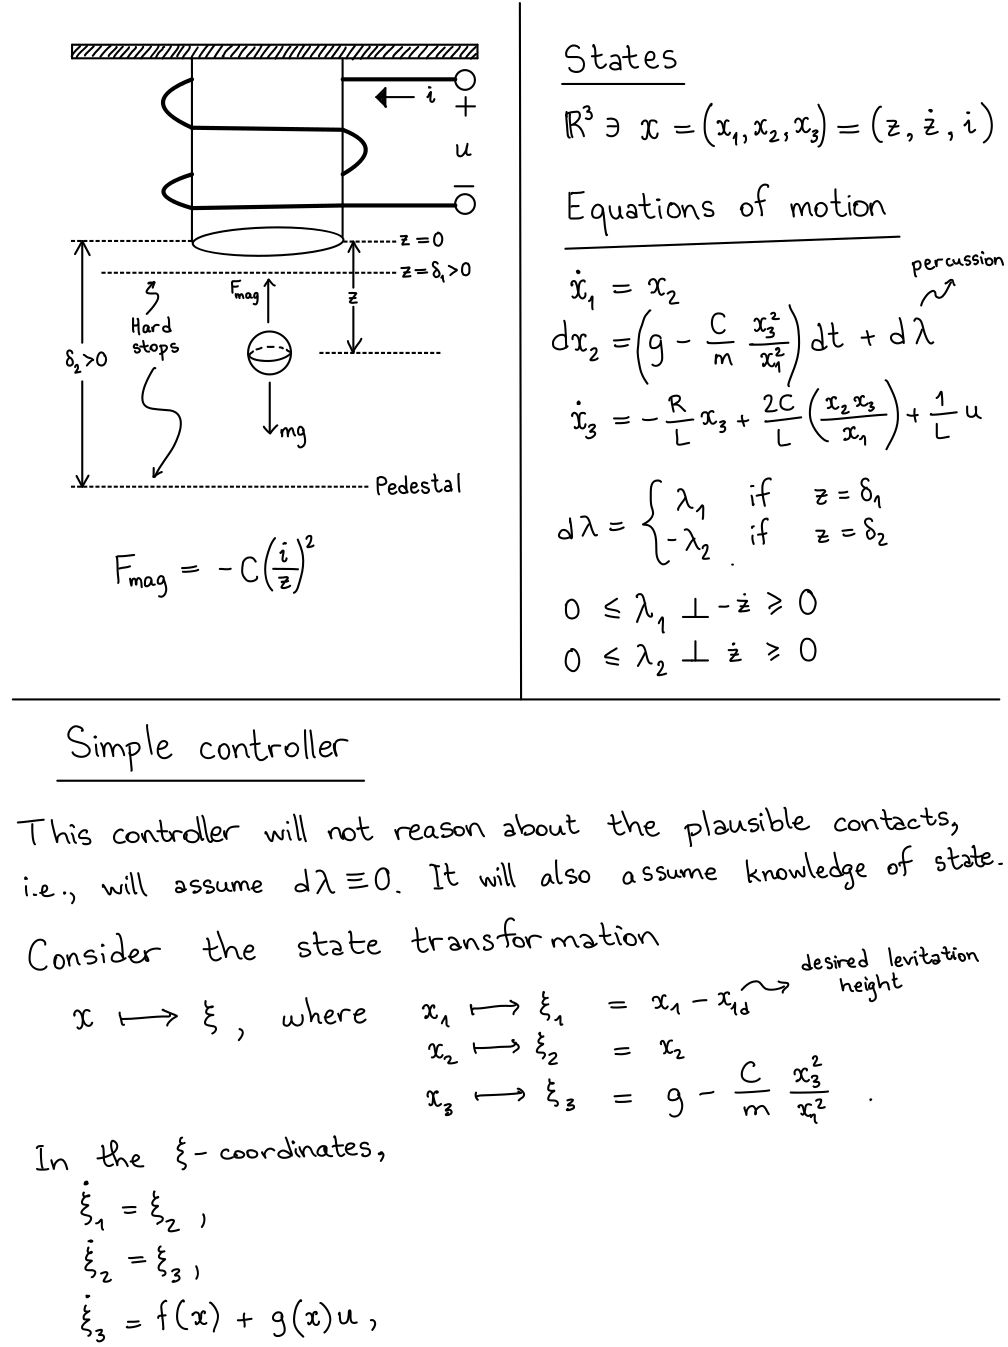 i
+
u
−
z = 0
z = δ₁ > 0
F_mag
z
Hard
stops
δ₂ > 0
mg
Pedestal
F_mag = - C (i/z)²
States
ℝ³ ∋ x = (x₁, x₂, x₃) = (z, ż, i)
Equations of motion
percussion
ẋ₁ = x₂
dx₂ = (g - C/m x₃²/x₁²) dt + dλ
ẋ₃ = - R/L x₃ + 2C/L (x₂x₃/x₁) + 1/L u
dλ = { λ₁ if z = δ₁
-λ₂ if z = δ₂ .
0 ≤ λ₁ ⊥ -ż ≥ 0
0 ≤ λ₂ ⊥ ż ≥ 0
Simple controller
This controller will not reason about the plausible contacts,
i.e., will assume dλ ≡ 0. It will also assume knowledge of state.
Consider the state transformation
desired levitation
height
x ⟼ ξ, where x₁ ⟼ ξ₁ = x₁ - x₁d
x₂ ⟼ ξ₂ = x₂
x₃ ⟼ ξ₃ = g - C/m x₃²/x₁² .
In the ξ-coordinates,
ξ̇₁ = ξ₂ ,
ξ̇₂ = ξ₃ ,
ξ̇₃ = f(x) + g(x)u ,